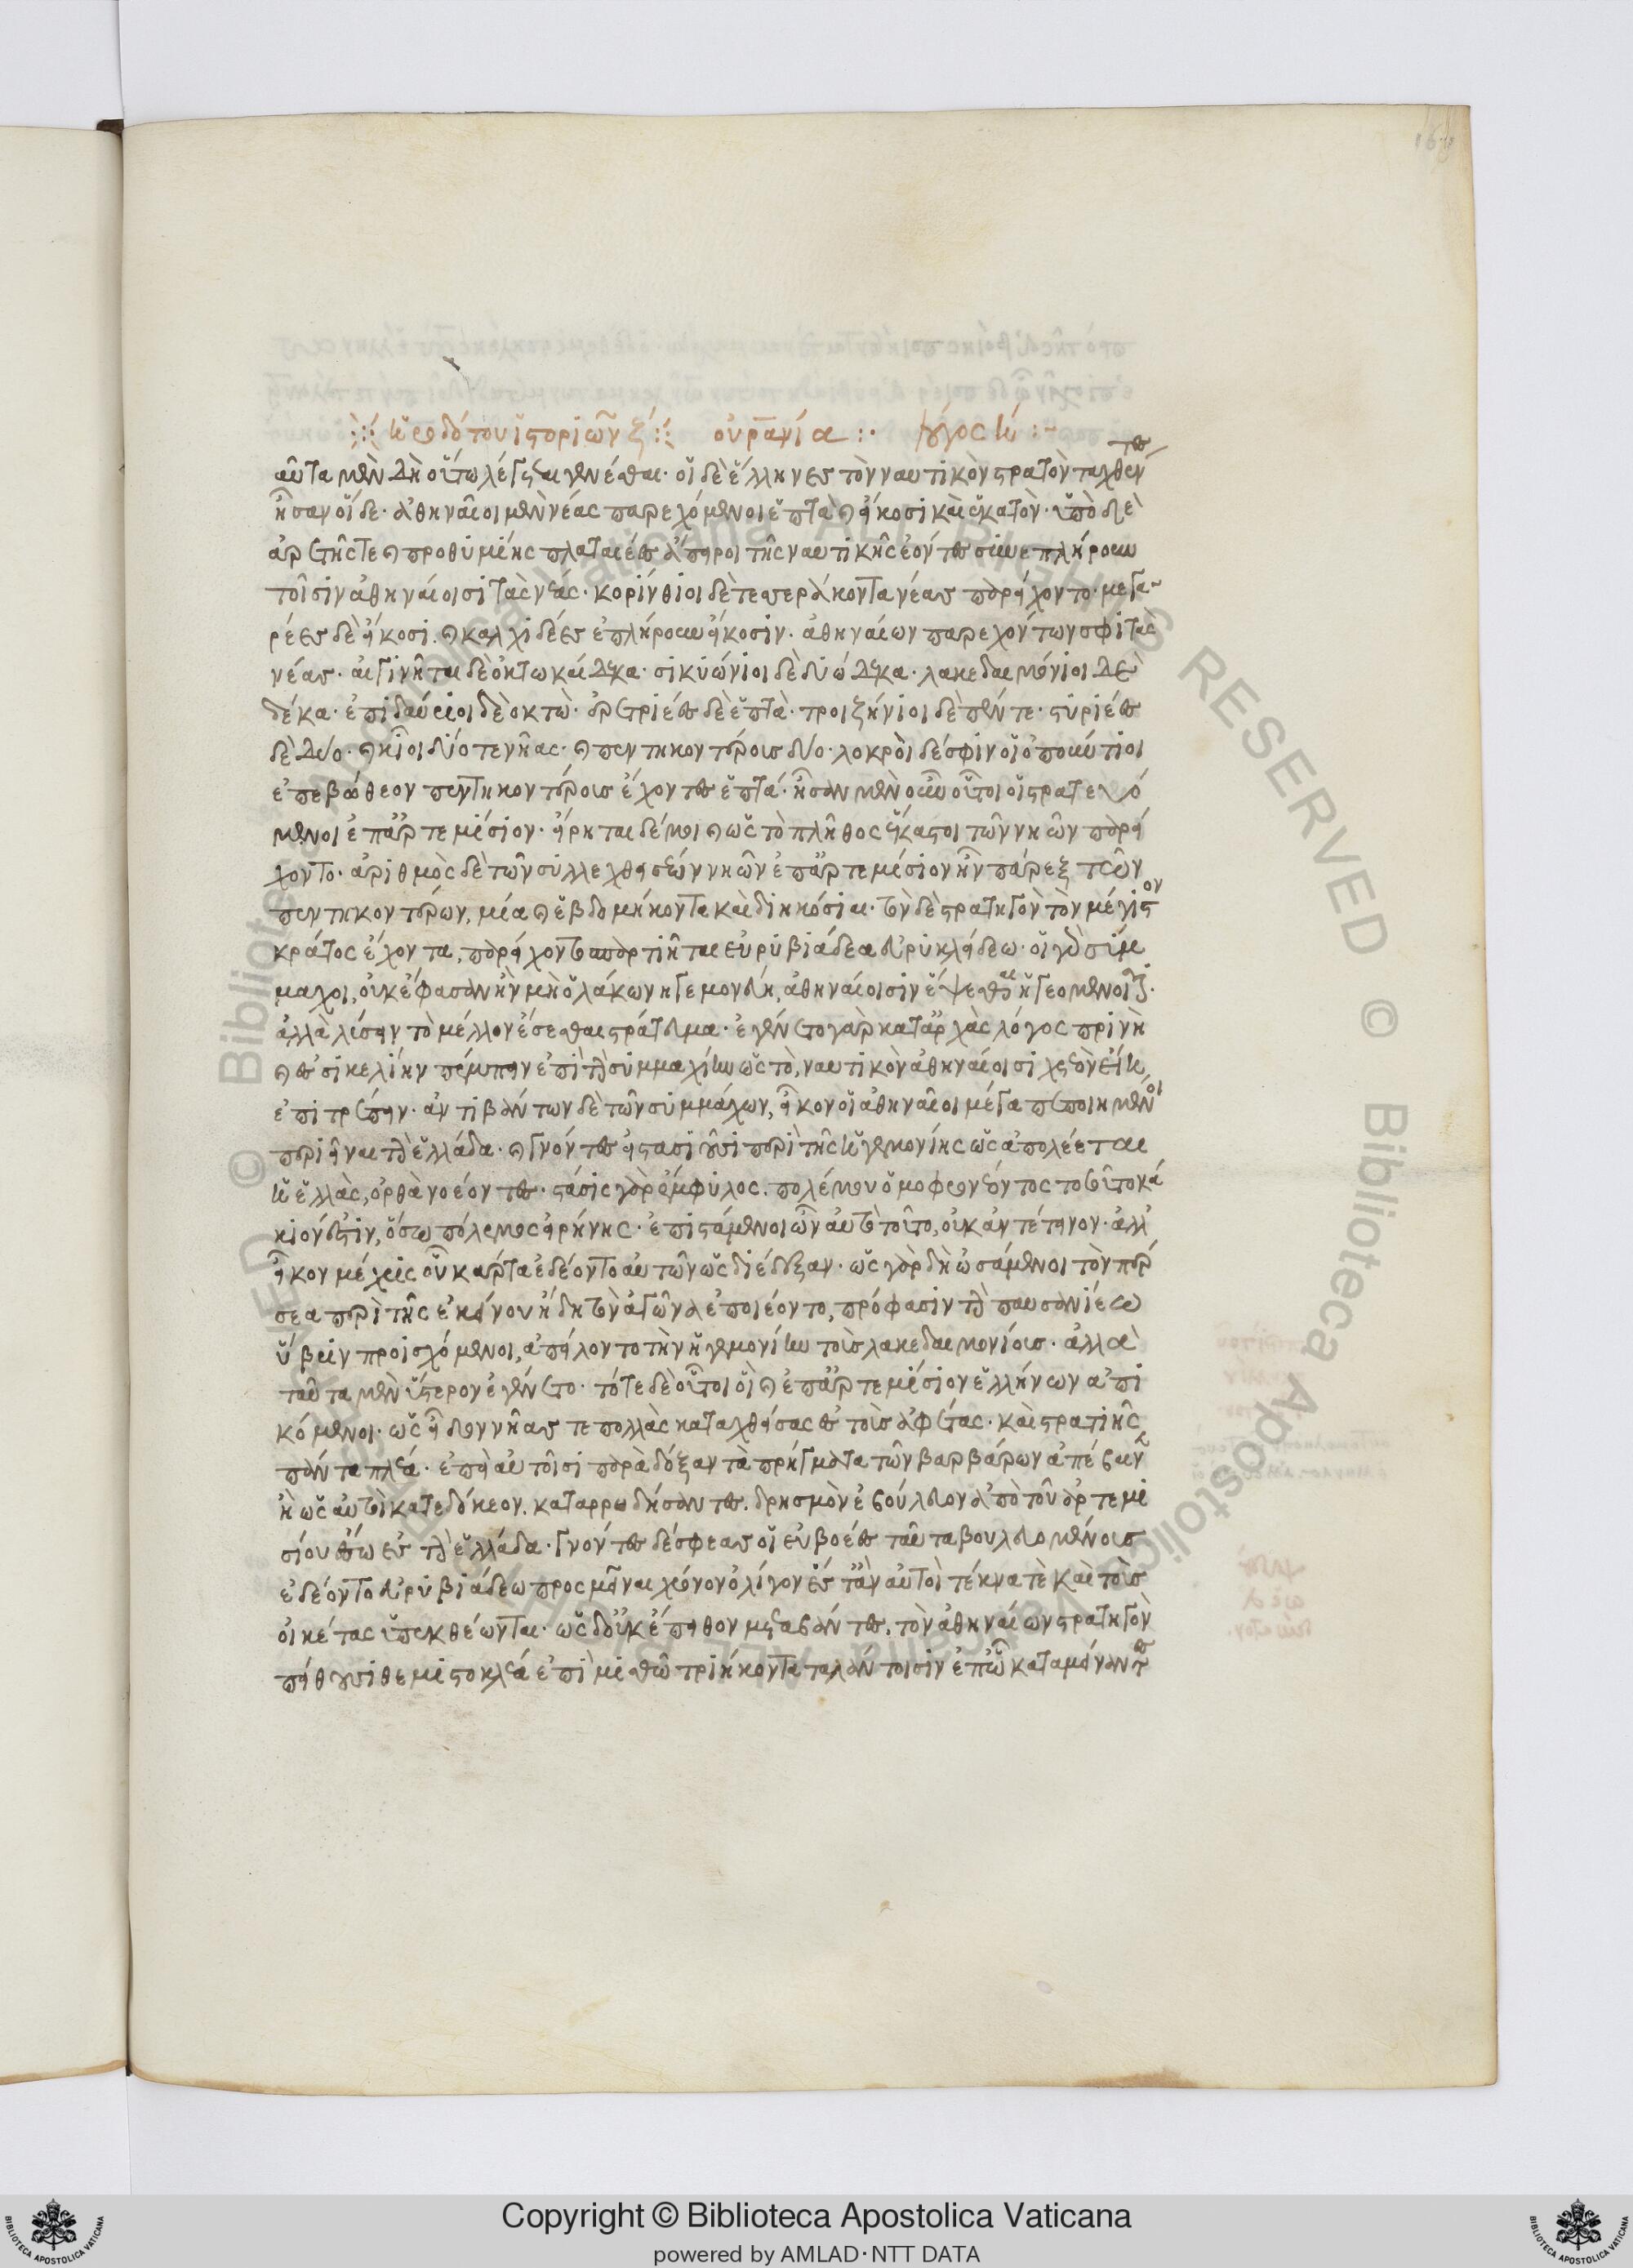 ἡροδότου ἱστοριῶν ξ οὐρανία λόγος η
ταῦτα μὲν δὴ οὕτω λέγεται γενέσθαι· οἱ δὲ ἕλληνες τὸν ναυτικὸν στρατὸν ταχθέντες
ἦσαν οἵδε· ἀθηναῖοι μὲν νέας παρεχόμενοι ἑπτὰ καὶ εἴκοσι καὶ ἑκατόν· ὑπὸ δὲ
ἀρετῆς τε καὶ προθυμίης πλαταιέες ἄπειροι τῆς ναυτικῆς ἐόντες συνεπλήρουν
τοῖσιν ἀθηναίοισι τὰς νέας· κορίνθιοι δὲ τεσσεράκοντα νέας παρείχοντο· μεγα
ρέες δὲ εἴκοσι. καὶ καλχιδέες ἐπλήρουν εἴκοσιν· ἀθηναίων παρεχόντων σφι τὰς
νέας· αἰγινῆται δὲ ὀκτωκαίδεκα· σικυώνιοι δὲ δυώδεκα· λακεδαιμόνιοι δὲ
δέκα· ἐπιδαύριοι δὲ ὀκτώ· ἐρετριέες δὲ ἑπτά· τροιζήνιοι δὲ πέντε· στυριέες
δὲ δύο· καὶ κῖοι δύο τε νῆας· καὶ πεντηκοντέρους δύο· λοκροὶ δέ σφιν οἱ ὀπούντιοι
ἐπεβώθεον πεντηκοντέρους ἔχοντες ἑπτά· ἦσαν μὲν οὖν οὗτοι οἱ στρατευό
μενοι ἐπ' ἀρτεμίσιον· εἴρηται δέ μοι καὶ ὡς τὸ πλῆθος ἕκαστοι τῶν νηῶν παρεί
χοντο· ἀριθμὸς δὲ τῶν συλλεχθεισέων νηῶν ἐπ' ἀρτεμίσιον ἦν πάρεξ τῶν
πεντηκοντέρων, μία καὶ ἑβδομήκοντα καὶ διηκόσιαι· τὸν δὲ στρατηγὸν τὸν μέγιστον
κράτος ἔχοντα, παρείχοντο σπαρτιῆται εὐρυβιάδεα εὐρυκλείδεω· οἱ γὰρ σύμ
μαχοι, οὐκ ἔφασαν ἢν μὴ ὁ λάκων ἡγεμονεύῃ, ἀθηναίοισιν ἕψεσθαι ἡγεομένοισι.
ἀλλὰ λύσειν τὸ μέλλον ἔσεσθαι στράτευμα· ἐγένετο γὰρ κατ' ἀρχὰς λόγος πρὶν ἢ
καὶ ἐς σικελίην πέμπειν ἐπὶ τὴν συμμαχίην ὡς τὸ, ναυτικὸν ἀθηναίοισι χρεὸν εἴη,
ἐπιτρέπειν· ἀντιβάντων δὲ τῶν συμμάχων, εἶκον οἱ ἀθηναῖοι μέγα πεποιημένοι
περιεῖναι τὴν ἑλλάδα· καὶ γνόντες εἰ στασιάσουσι περὶ τῆς ἡγεμονίης ὡς ἀπολέεται
ἡ ἑλλάς, ὀρθὰ νοέοντες· στάσις γὰρ ἔμφυλος. πολέμου ὁμοφρονέοντος τοσούτῳ κά
κιόν ἐστιν, ὅσῳ πόλεμος εἰρήνης· ἐπιστάμενοι ὦν αὐτὸ τοῦτο, οὐκ ἀντέτεινον· ἀλλ'
εἶκον μέχρις οὗ κάρτα ἐδέοντο αὐτῶν ὡς διέδεξαν· ὡς γὰρ δὴ ὠσάμενοι τὸν πέρ
σεα περὶ τῆς ἐκείνου ἤδη τὸν ἀγῶνα ἐποιέοντο, πρόφασιν τὴν παυσανίεω
ὕβριν προϊσχόμενοι, ἀπείλοντο τὴν ἡγεμονίην τοὺς λακεδαιμονίους· ἀλλὰ
ταῦτα μὲν ὕστερον ἐγένετο· τότε δὲ οὗτοι οἱ καὶ ἐπ' ἀρτεμίσιον ἑλλήνων ἀπι
κόμενοι· ὡς εἶδον νῆας τε πολλὰς καταχθείσας ἐς τοὺς ἀφετάς· καὶ στρατιῆς
πάντα πλέα· ἐπεὶ αὐτοῖσι παρὰ δόξαν τὰ πρήγματα τῶν βαρβάρων ἀπέβαινε
ἢ ὡς αὐτοὶ κατεδόκεον. καταρρωδήσαντες. δρησμὸν ἐβούλευον ἀπὸ τοῦ ἀρτεμι
σίου ἔσω ἐς τὴν ἑλλάδα· γνόντες δέ σφεας οἱ εὐβοέες ταῦτα βουλευομένους
ἐδέοντο εὐρυβιάδεω προσμεῖναι χρόνον ὀλίγον ἔστ' ἂν αὐτοὶ τέκνα τὲ καὶ τοὺς
οἰκέτας ὑπεκθέωνται· ὡς δ' οὐκ ἔπειθον μεταβάντες. τὸν ἀθηναίων στρατηγὸν
πείθουσι θεμιστοκλέα ἐπὶ μισθῷ τριήκοντα ταλάντοισιν ἐπ' ᾧ καταμείναντες
Copyright © Biblioteca Apostolica Vaticana
powered by AMLAD·NTT DATA